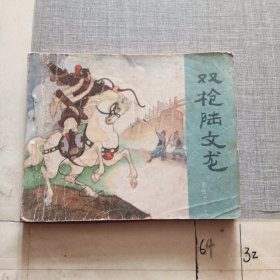 双枪陆文龙
64
32